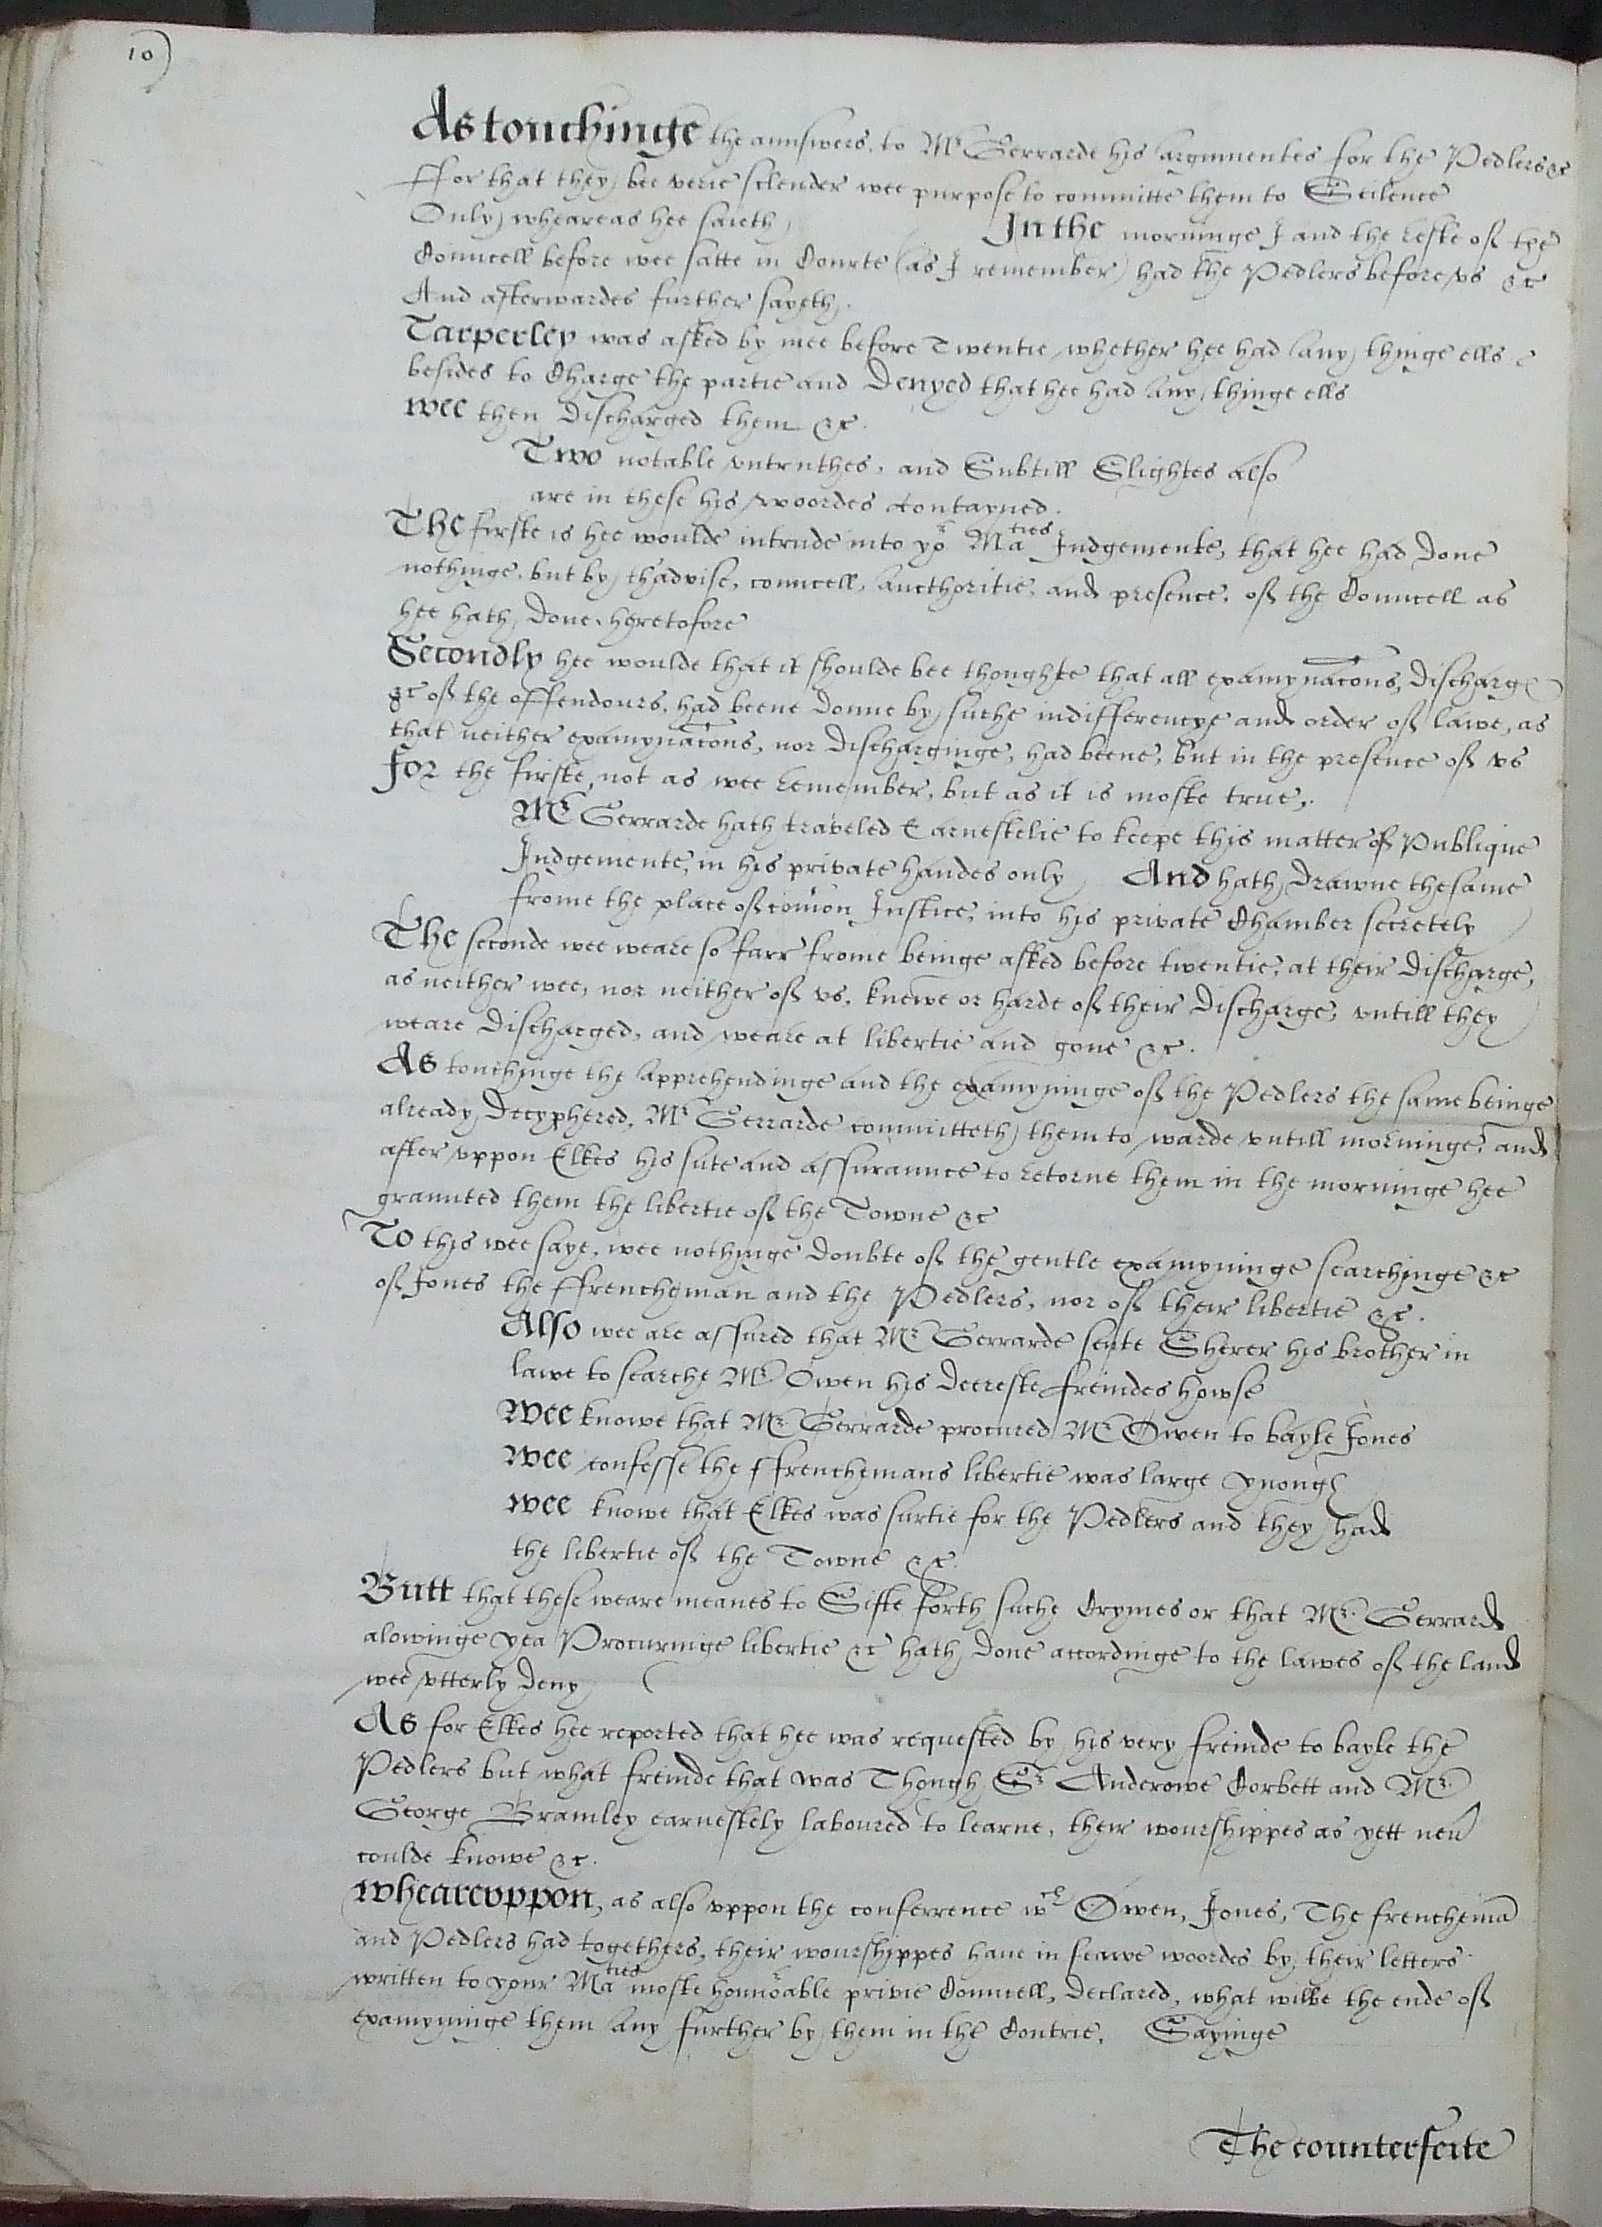 10)
As touchinge the aunswers, to Mr Gerrarde his argumentes for the Pedlers &c
ffor that they bee verie sclender wee purpose to committe them to Scilence
Only wheareas hee saieth, In the morninge I and the reste of the
Councell before wee satte in Courte (as I remember) had the Pedlers before vs &c
And afterwardes further sayeth,
Tarperley was asked by mee before Twentie whether hee had any thinge ells
besides to Charge the partie and Denyed that hee had any thinge ells
wee then discharged them &c.
Two notable vntruthes, and Subtill Slightes also
are in these his woordes contayned.
The firste is hee woulde intrude into yor Maties Judgemente, that hee had done
nothinge, but by thadvise, councell, aucthoritie, and presence, of the Councell as
hee hath done heretofore
Secondly hee woulde that it shoulde bee thoughte that all examynacons, discharg
&c of the offendours, had beene donne by suche indifferencye and order of lawe, as
that neither examynacons, nor discharginge, had beene, but in the presence of vs
for the firste, not as wee remember, but as it is moste true,.
Mr Gerrarde hath traveled Earnestelie to keepe this matter of Publique
Judgemente, in his private handes only And hath drawne thesame
frome the place of comon Justice, into his private Chamber secretely
The seconde wee weare so farr frome beinge asked before twentie, at their discharge,
as neither wee, nor neither of vs, knewe or harde of their discharge, vntill they
weare discharged, and weare at libertie and gone &c.
As touchinge the apprehendinge and the examyninge of the Pedlers the same beinge
already decyphered, Mr Gerrarde committeth them to warde vntill morninge, and
after vppon Elkes his sute and assuraunce to retorne them in the morninge hee
graunted them the libertie of the Towne &c
To this wee saye, wee nothinge doubte of the gentle examyninge searchinge &c
of Jones the ffrencheman and the Pedlers, nor of their libertie &c.
Also wee are assured that Mr Gerrarde sente Sherer his brother in
lawe to searche Mr Owen his deereste freindes howse
Wee knowe that Mr Gerrarde procured Mr Owen to bayle Jones
Wee confesse the ffrenchemans libertie was large ynough
wee knowe that Elkes was surtie for the Pedlers and they had
the libertie of the Towne &c.
Butt that these weare meanes to Sifte forth suche Crymes or that Mr. Gerrard
alowinge yea Procuringe libertie &c hath done accordinge to the lawes of the land
wee vtterly deny
As for Elkes hee reported that hee was requested by his very freinde to bayle the
Pedlers but what freinde that was Though Sr Anderowe Corbett and Mr.
George Bramley earnestely laboured to learne, their wourshippes as yett neu
coulde knowe &c.
wheareuppon, as also vppon the conferrence wch Owen, Jones, The frenchema
and Pedlers had togethers, their wourshippes haue in feawe woordes by their letters
written to your Maties moste honnoable privie Councell, declared, what wilbe the ende of
examyninge them any further by them in the Contrie, Sayinge
The counterfeite